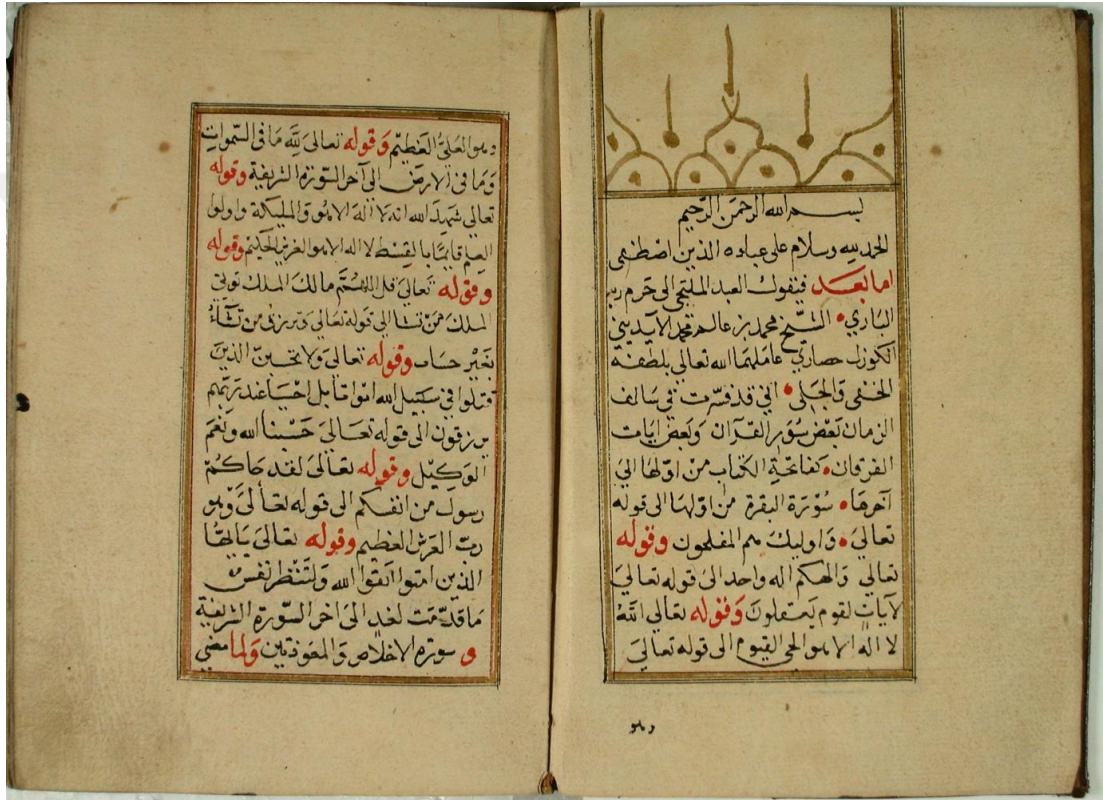 بسم الله الرحمن الرحيم
الحمد لله وسلام على عباده الذين اصطفى
اما بعد فيقول العبد الملتجى الى حرم ربه
البارى الشيخ محمد بن عالم محمد الآيدينى
الكوزل حصارى عاملهما الله تعالى بلطفه
الخفى والجلى انى قد فسرت فى سالف
الزمان بعض سور القرآن وبعض ايات
الفرقان كفاتحة الكتاب من اولها الى
آخرها سورة البقرة من اولها الى قوله
تعالى واوليك هم المفلحون وقوله
تعالى والهكم اله واحد الى قوله تعالى
لآيات لقوم يعقلون وقوله تعالى الله
لا اله الا هو الحى القيوم الى قوله تعالى
وهو
وهو العلى العظيم وقوله تعالى لله ما فى السموات
وما فى الارض الى آخر السورة الشريفة وقوله
تعالى شهد الله انه لا اله الا هو والمليكة واولوا
العلم قايما بالقسط لا اله الا هو العزيز الحكيم وقوله
وقوله تعالى قل اللهم مالك الملك توتى
الملك من تشا الى قوله تعالى وترزق من تشاء
بغير حساب وقوله تعالى ولا تحسبن الذين
قتلوا فى سبيل الله امواتا بل احيا عند ربهم
يرزقون الى قوله تعالى حسبنا الله ونعم
الوكيل وقوله تعالى لقد جاكم
رسول من انفسكم الى قوله تعالى وهو
رب العرش العظيم وقوله تعالى يا ايها
الذين امنوا اتقوا الله ولتنظر نفس
ما قدمت لغد الى آخر السورة الشريفة
و سورة الاخلاص والمعوذتين ولما مضى